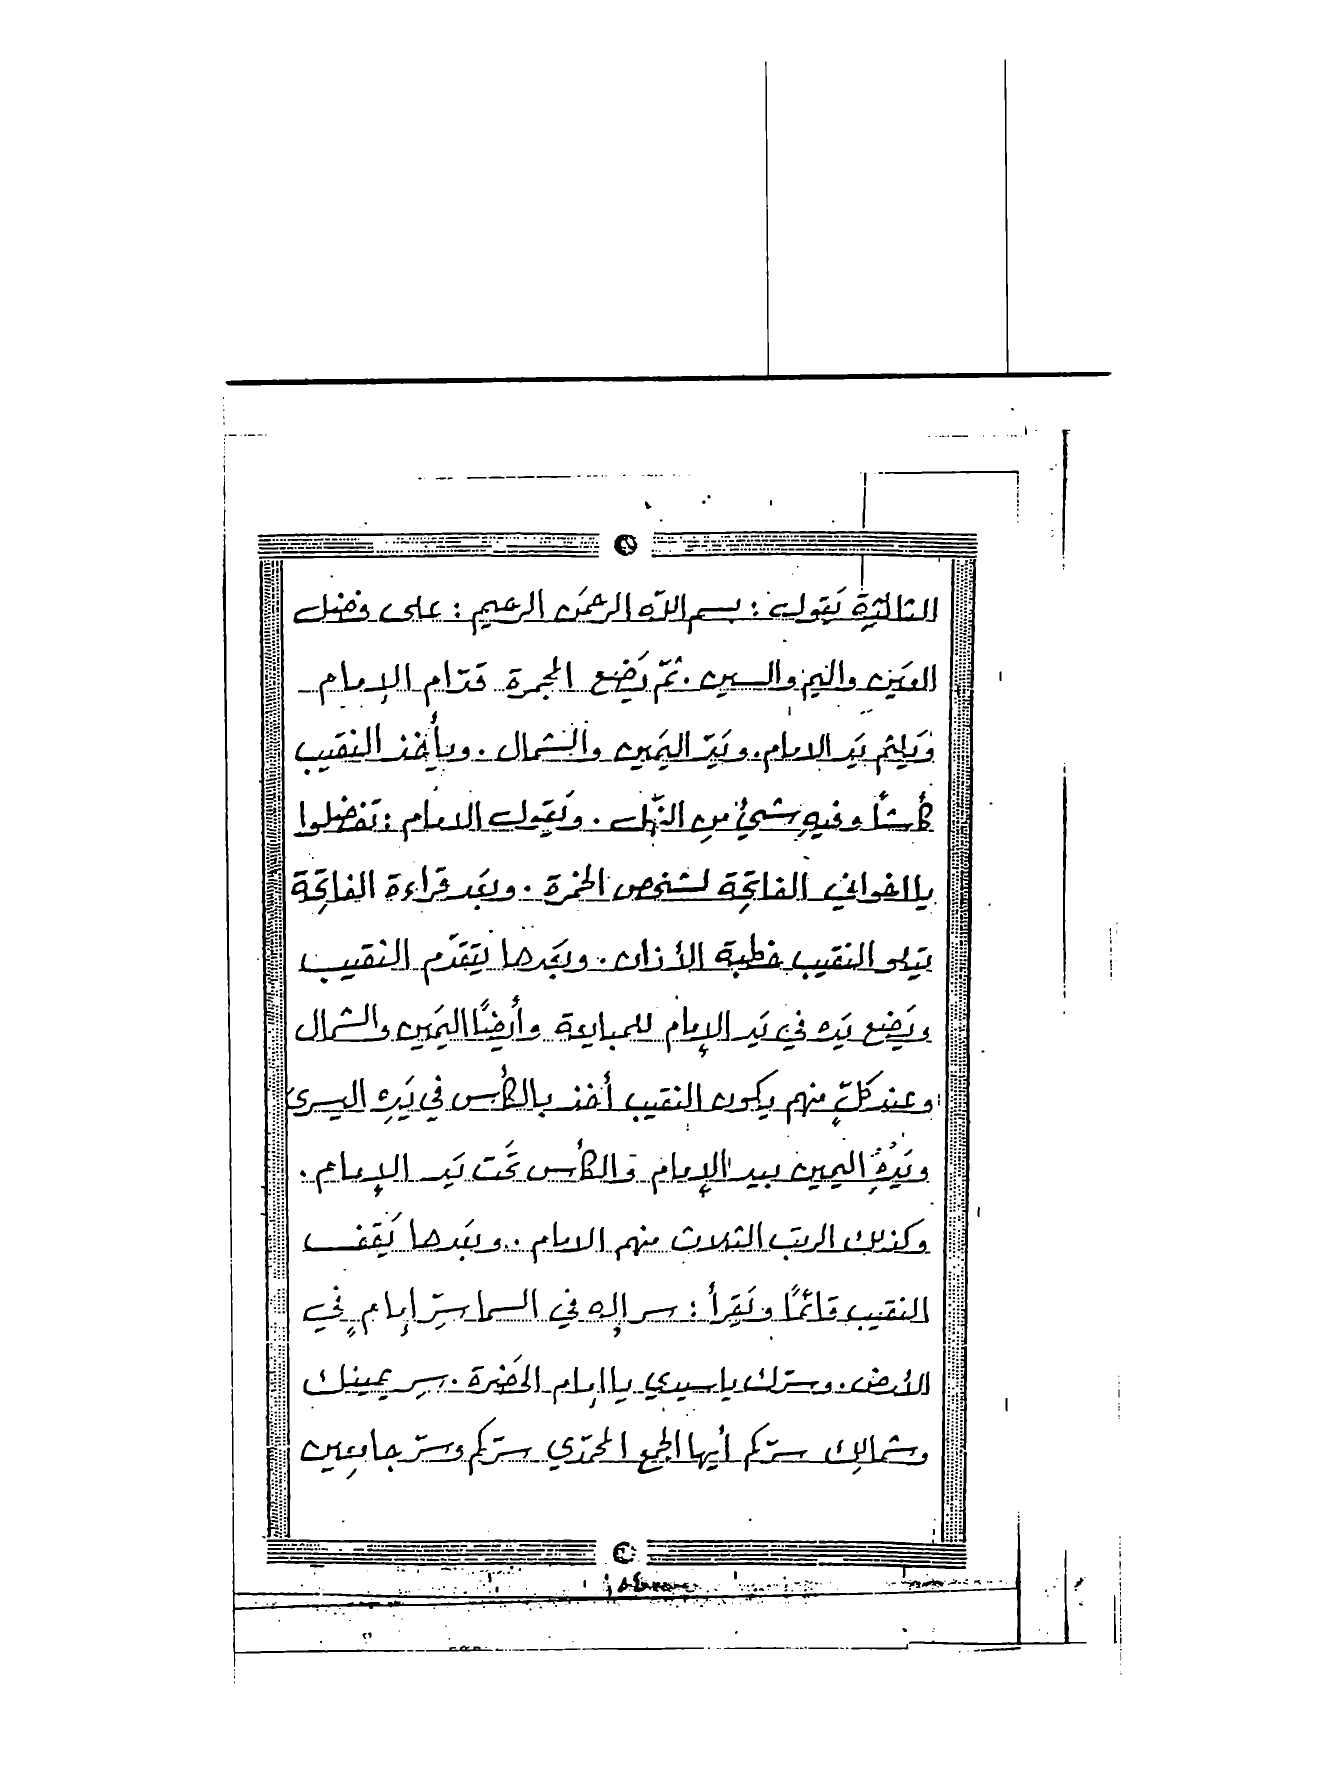 الثالثة يَقول : بسم اللّه الرحمَن الرحيم : على فضل
العَين والميم والسين . ثمّ يَضع المجمرة قدّام الإمام
وَيلثم يَد الامام . ويَدّ اليَمين والشمال . ويأخذ النقيب
كأسًا وفيه شيئ من النهل . ويَقول الامام : تفضلوا
يا اخواني الفاتِحة لشخص الخمرة . وبَعد قراءة الفاتِحة
يتلو النقيب خطبة الأذان . وبَعدها يَتقدّم النقيب
ويَضع يَده في يَد الإمام للمبايعة وأيضًا اليَمين والشمال
وعند كلٍّ منهم يكون النقيب أخذ بالكأس في يَدِه اليسرى
ويَدُهُ اليمين بيد الإمام والكأس تحَت يَد الإمام .
وكذلك الرتب الثلاث منهم الامام . وبَعدها يَقف
النقيب قائمًا ويَقرأ : سر إله في السما سرّ إمامٍ في
الأرض . وسرّك يا سيدي يا إمام الحَضرة . سر يمينك
وشمالك سرّكم أيها الجمع المحمّدي سرّكم وسرّ جامِعين